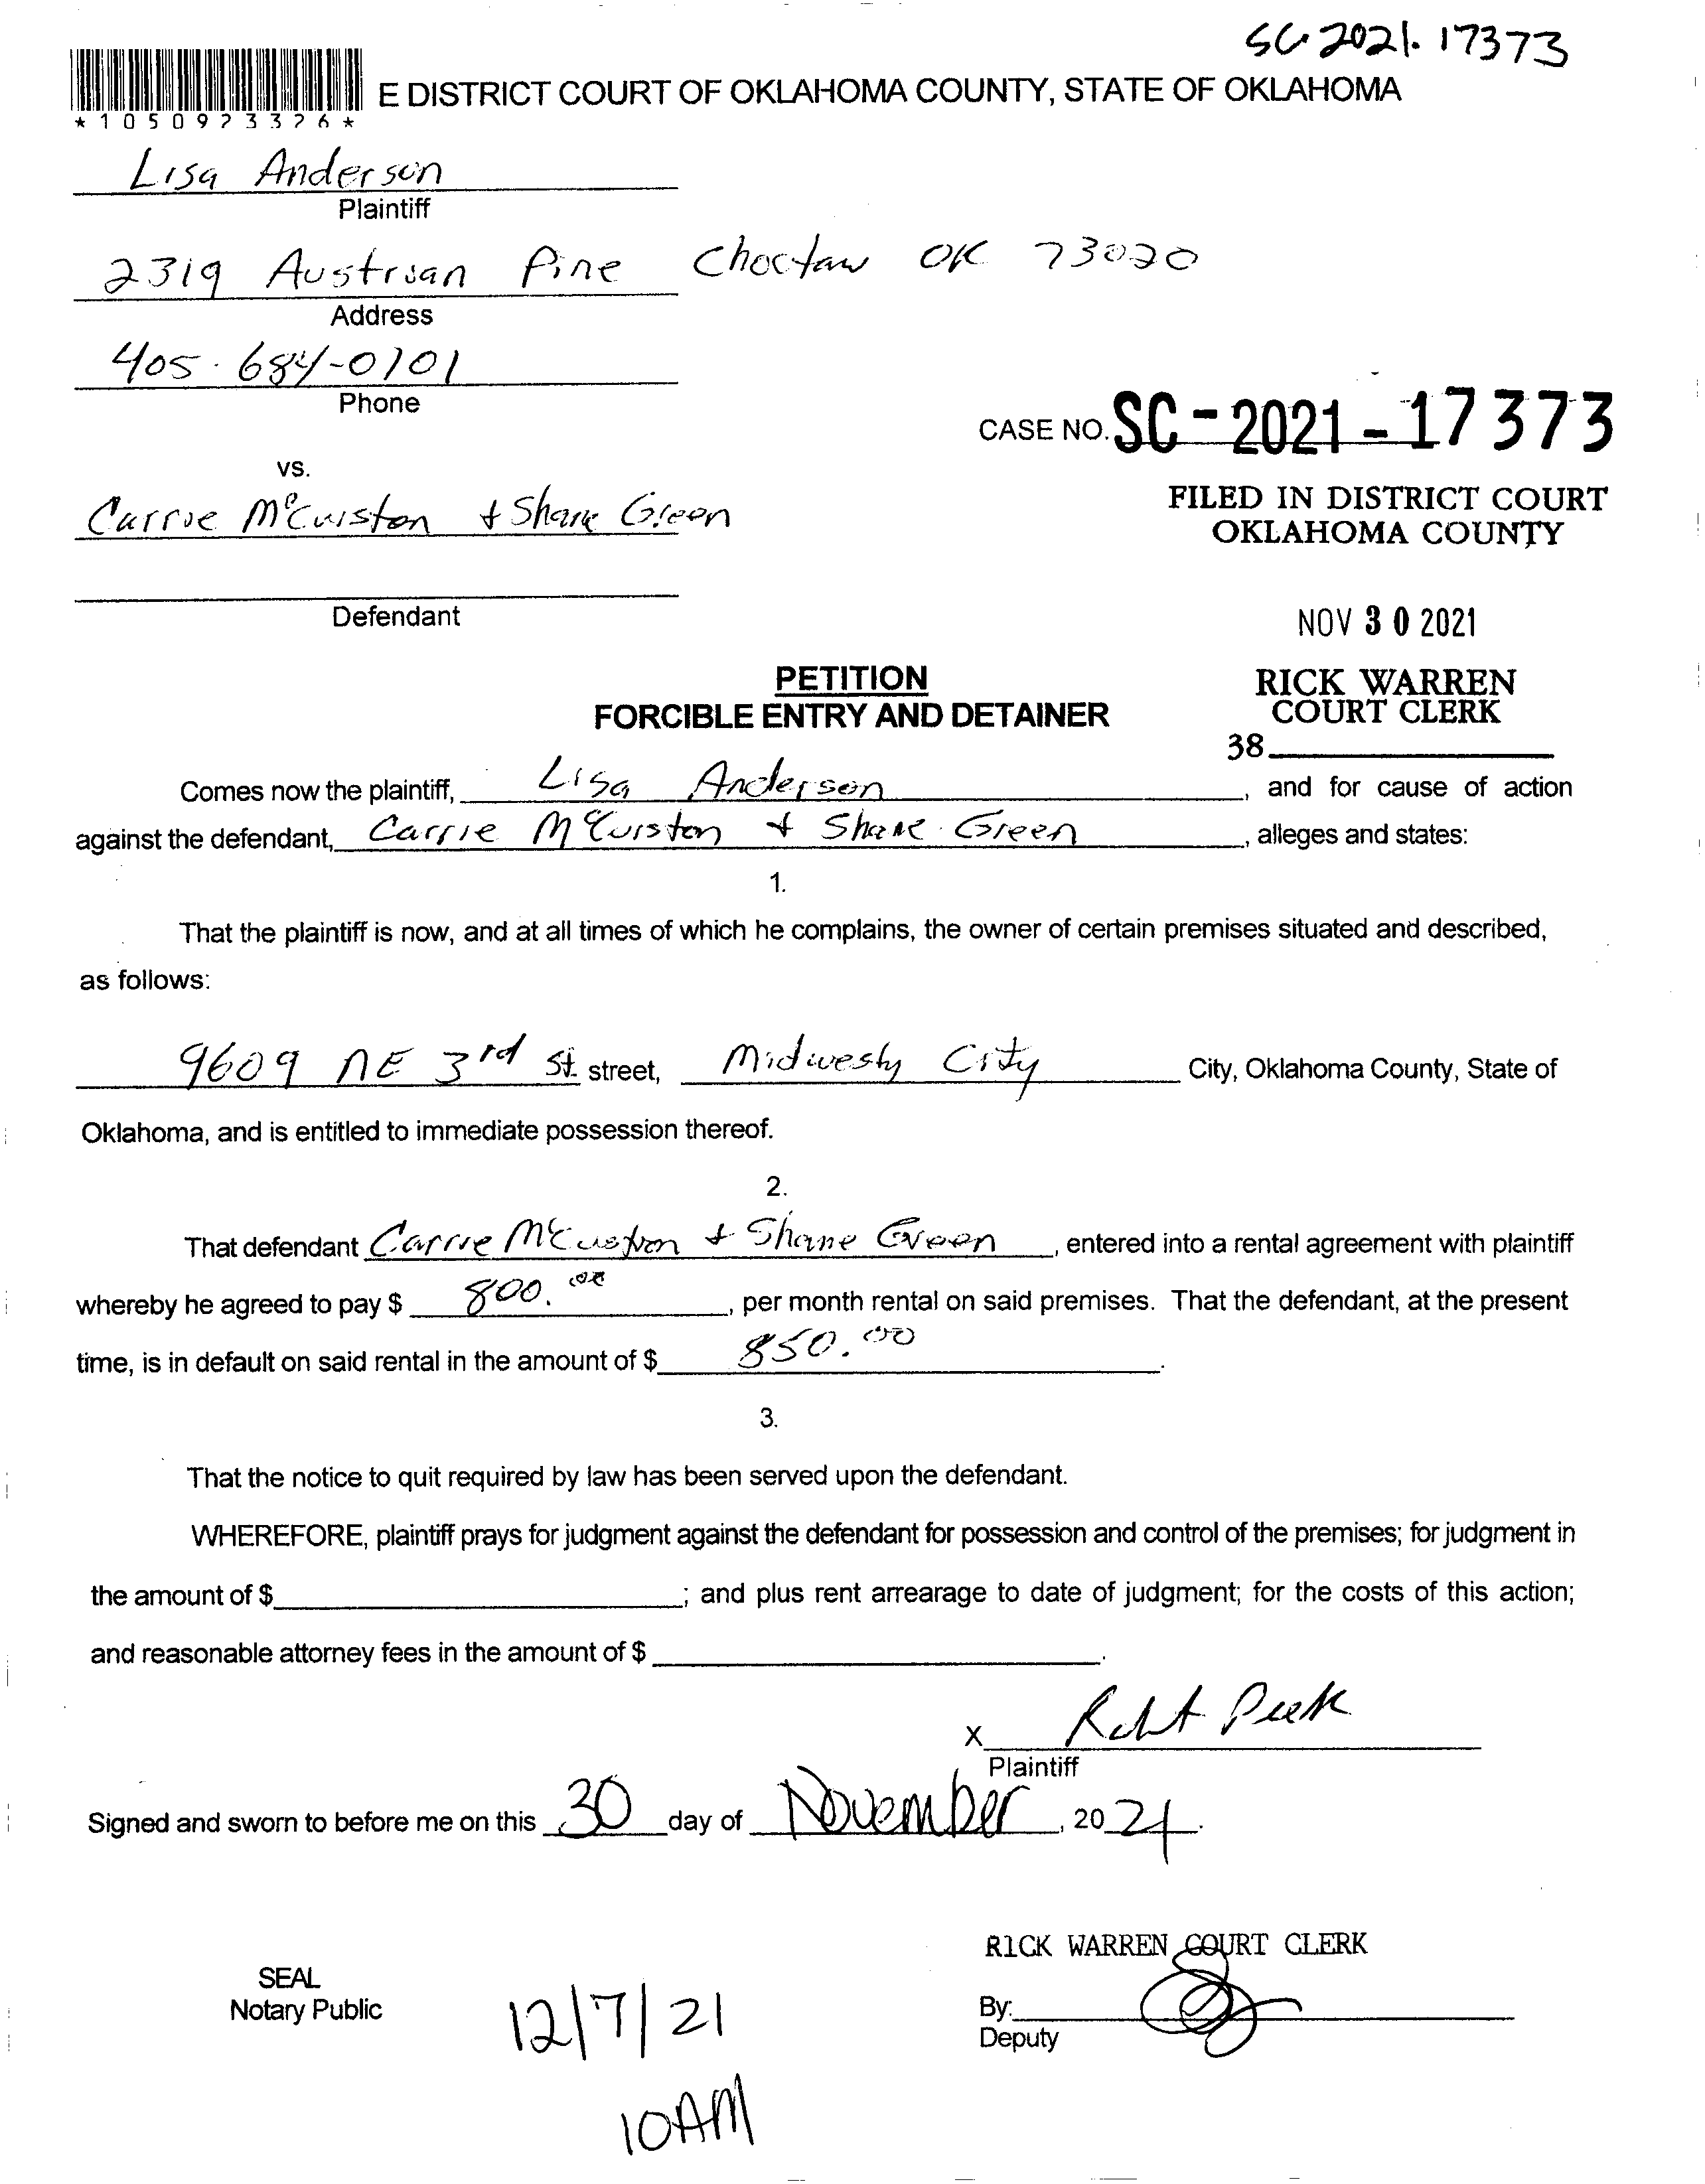 SC 2021. 17373
E DISTRICT COURT OF OKLAHOMA COUNTY, STATE OF OKLAHOMA
* 1 0 5 0 9 2 3 3 2 6 *
Lisa Anderson
Plaintiff
2319 Austrian Pine Choctaw OK 73020
Address
405-684-0101
Phone
CASE NO. SC-2021-17373
vs.
FILED IN DISTRICT COURT
Carrie McCuiston + Shane Green
OKLAHOMA COUNTY
Defendant
NOV 30 2021
PETITION
RICK WARREN
FORCIBLE ENTRY AND DETAINER
COURT CLERK
38
Comes now the plaintiff, Lisa Anderson, and for cause of action
against the defendant, Carrie McCuiston + Shane Green, alleges and states:
1.
That the plaintiff is now, and at all times of which he complains, the owner of certain premises situated and described,
as follows:
9609 NE 3rd St. street, Midwesty City City, Oklahoma County, State of
Oklahoma, and is entitled to immediate possession thereof.
2.
That defendant Carrie McCuistion + Shane Green, entered into a rental agreement with plaintiff
whereby he agreed to pay $ 800.00, per month rental on said premises. That the defendant, at the present
time, is in default on said rental in the amount of $ 850.00.
3.
That the notice to quit required by law has been served upon the defendant.
WHEREFORE, plaintiff prays for judgment against the defendant for possession and control of the premises; for judgment in
the amount of $ ; and plus rent arrearage to date of judgment; for the costs of this action;
and reasonable attorney fees in the amount of $ .
X
Plaintiff
Signed and sworn to before me on this 30 day of November, 2021.
RICK WARREN COURT CLERK
SEAL
Notary Public
12/7/21
By:
Deputy
10AM